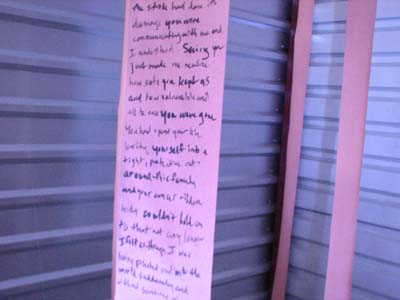 the stroke had done its
damage you were
communicating with me and
I understood. Seeing you
just made me realize
how safe you kept us
and how vulnerable we'd
all be once you were gone
You had spent your life
yourself into a
tight, protective
around this family
and your cancer ridden
body couldn't hold on
to that not any longer
I felt as though I was
being pushed out into the
world suddenly and
without